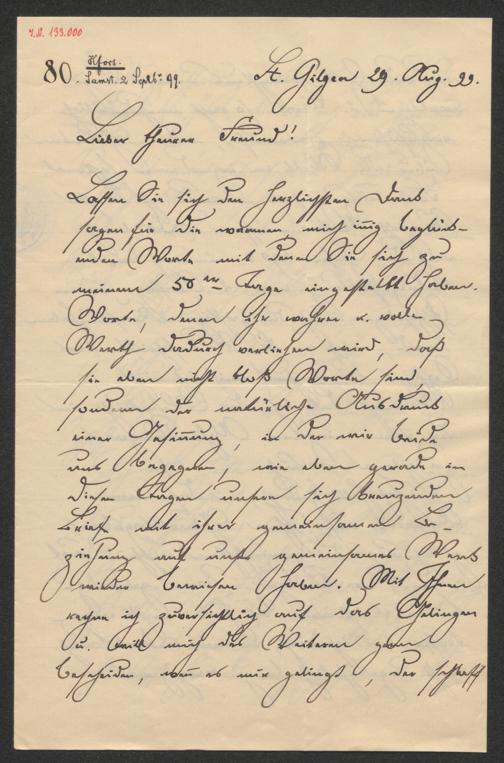 I.N. 133.000
80. Kfort.
Samst. 2 Septbr 99.
St. Gilgen 29. Aug. 99.
Lieber theurer Freund!
Lassen Sie sich den herzlichsten Dank
sagen für die warmen, mich innig beglück-
enden Worte mit denen Sie sich zu
meinem 50er Tage eingestellt haben.
Worte, denen ihr wahrer u. voller
Werth dadurch verliehen wird, daß
sie eben nicht bloß Worte sind,
sondern der natürliche Ausdruck
einer Gesinnung, in der wir beide
uns begegnen, wie eben gerade in
diesen Tagen unsere sich kreuzenden
Briefe mit ihrer gemeinsamen Be-
ziehung auf unser gemeinsames Werk
wieder bewiesen haben. Mit Ihnen
rechne ich zuversichtlich auf das Gelingen
u. will mich des Weiteren gern
bescheiden, wenn es mir gelingt, der